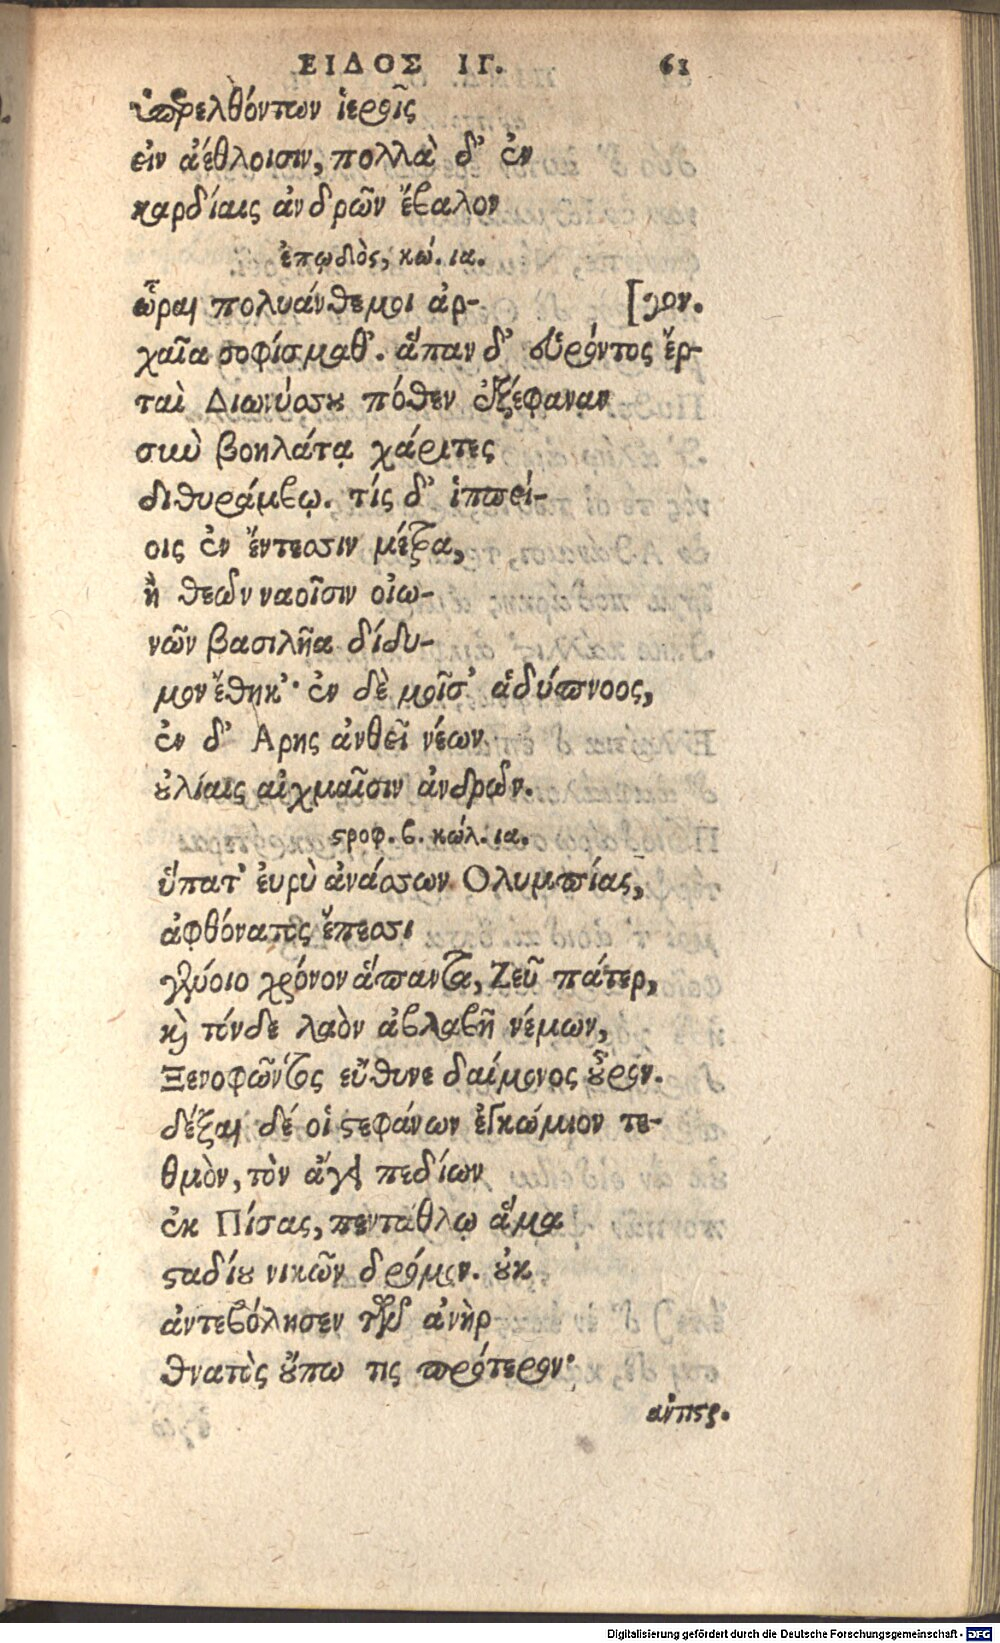 ΕΙΔΟΣ ΙΓ. 61
ὑπερελθόντων ἱεροῖς
εἰν ἀέθλοισιν, πολλὰ δ' ἐν
καρδίαις ἀνδρῶν ἔβαλον
ἐπῳδὸς, κώ. ια.
ὧραι πολυάνθεμοι ἀρ- [γον.
χαῖα σοφίσμαθ'. ἅπαν δ' εὑρόντος ἔρ-
ταὶ Διωνύσου πόθεν ἐξέφαναν
σιωὺ βοηλάτᾳ χάριτες
διθυράμβῳ. τίς δ' ἱππεί-
οις ἐν ἔντεσσιν μέτρα,
ἢ θεῶν ναοῖσιν οἰω-
νῶν βασιλῆα δίδυ-
μον ἔθηκ'· ἐν δὲ μοῖσ' ἁδύπνοος,
ἐν δ' Αρης ἀνθεῖ νέων
οὐλίαις αἰχμαῖσιν ἀνδρῶν.
στροφ. β. κώλ. ια.
ὕπατ' ἐυρὺ ἀνάσσων Ολυμπίας,
ἀφθόνατος ἔπεσσι
γένοιο χρόνον ἅπαντα, Ζεῦ πάτερ,
καὶ τόνδε λαὸν ἀβλαβῆ νέμων,
Ξενοφῶντος εὔθυνε δαίμονος οὖρον.
δέξαι δέ οἱ στεφάνων ἐγκώμιον τε-
θμὸν, τὸν ἄγει πεδίων
ἐκ Πίσας, πενταθλῳ ἅμα
σταδίου νικῶν δρόμον. οὐκ
ἀντεβόλησεν τῶν ἀνὴρ
θνατὸς οὔπω τις πρότερον·
αντιστρ.
Digitalisierung gefördert durch die Deutsche Forschungsgemeinschaft - DFG